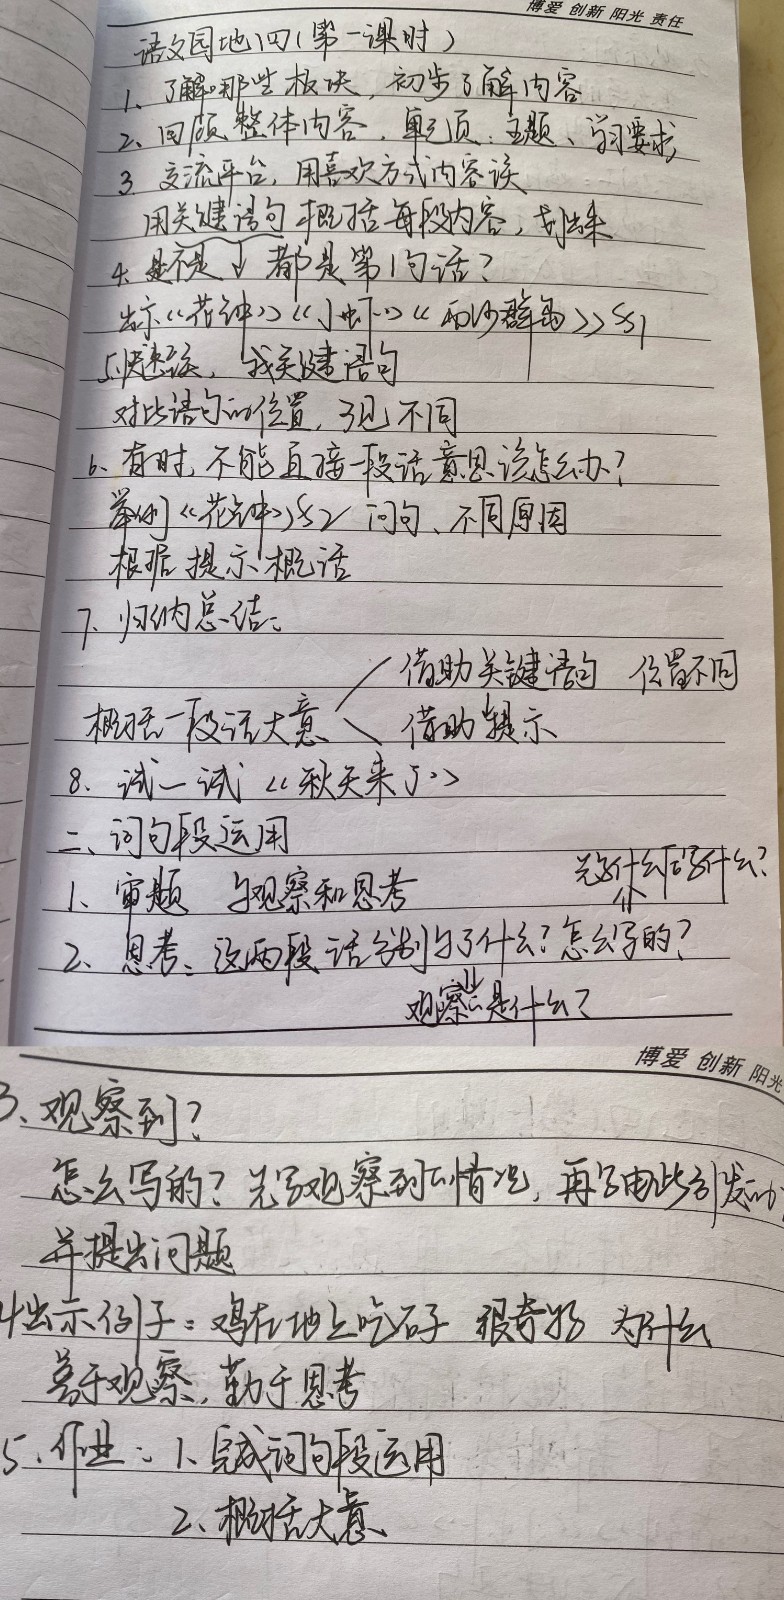 博爱 创新 阳光 责任
语文园地四(第一课时)
1、了解哪些板块,初步了解内容
2、回顾整体内容,单元页:主题、学习要求
3、交流平台,用喜欢方式内容读
用关键语句概括每段内容,划出来
4、是不是↓都是第1句话?
出示《花钟》《小虾》《西沙群岛》§1
5、快速读,找关键语句
对比语句的位置,发现不同
6、有时,不能直接一段话意思该怎么办?
举例《花钟》§2 问句、不同原因
根据提示概括
7、归纳总结:
借助关键语句 位置不同
概括一段话大意
借助提示
8、试一试《秋天来了》
二、词句段运用
先写什么后写什么?
1、审题 与观察和思考
2、思考:这两段话分别写了什么?怎么写的?
观察些是什么?
博爱 创新 阳光
3、观察到?
怎么写的?先写观察到的情况,再写由此引发的
并提出问题
4出示例子:鸡在地上吃石子 很奇妙 为什么
善于观察,勤于思考
5、作业:1、完成词句段运用
2、概括大意